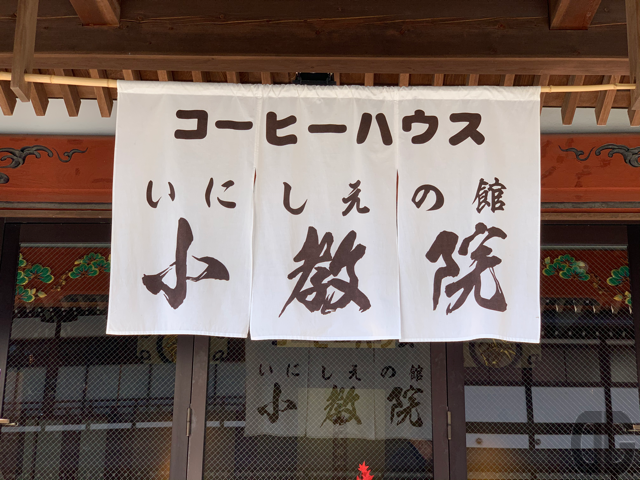 コーヒーハウス
いにしえの館
小教院
いにしえの館
小教院